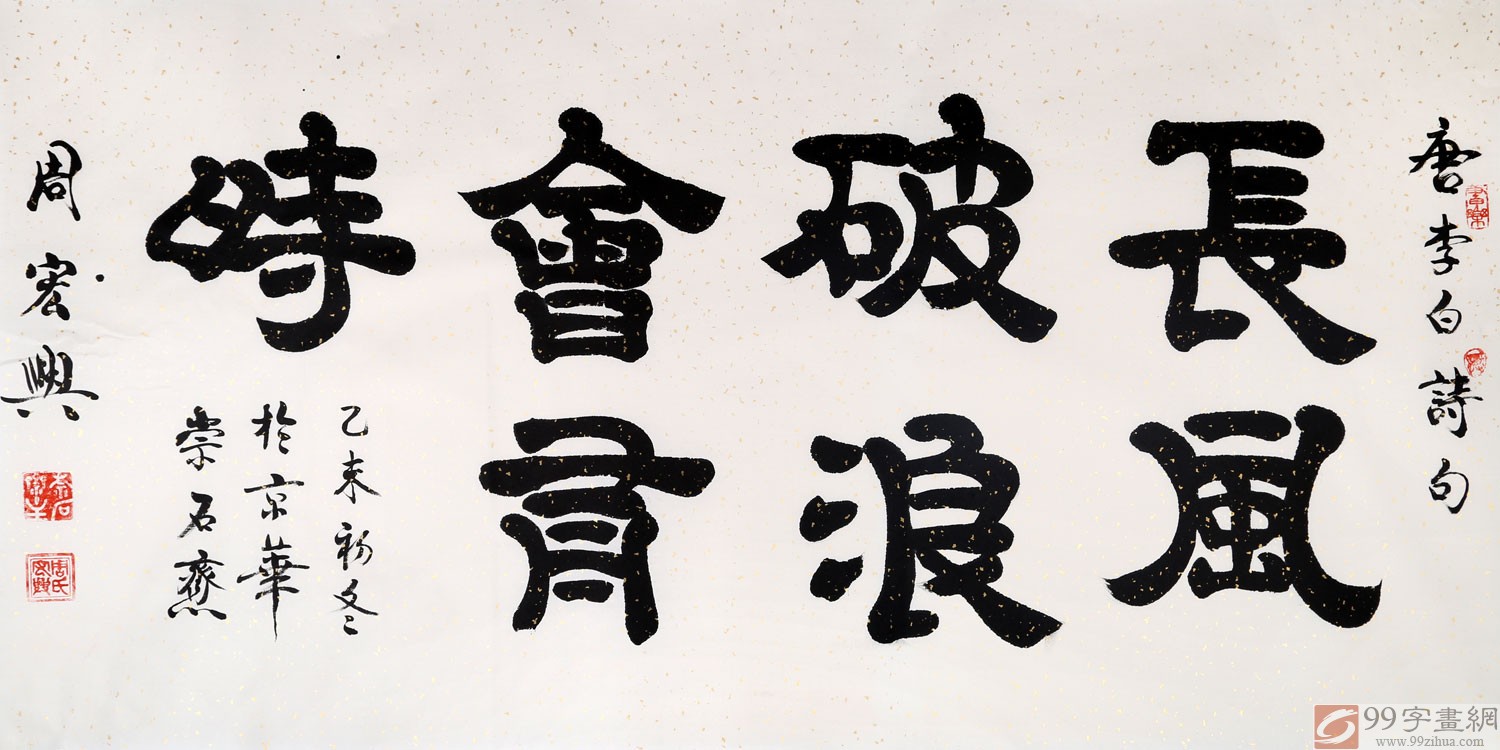 唐李白詩句
長風
破浪
會有
時
乙未初冬
於京華
崇石齋
周宏興
周氏宏興
99字畫網
www.99zihua.com